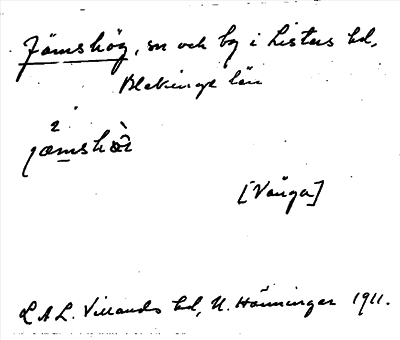 Jämshög, sn och by i Listers hd,
Blekinge län
2
jæmshòi
[Vånga]
L A L. Villands hd, N. Hänninger 1911.